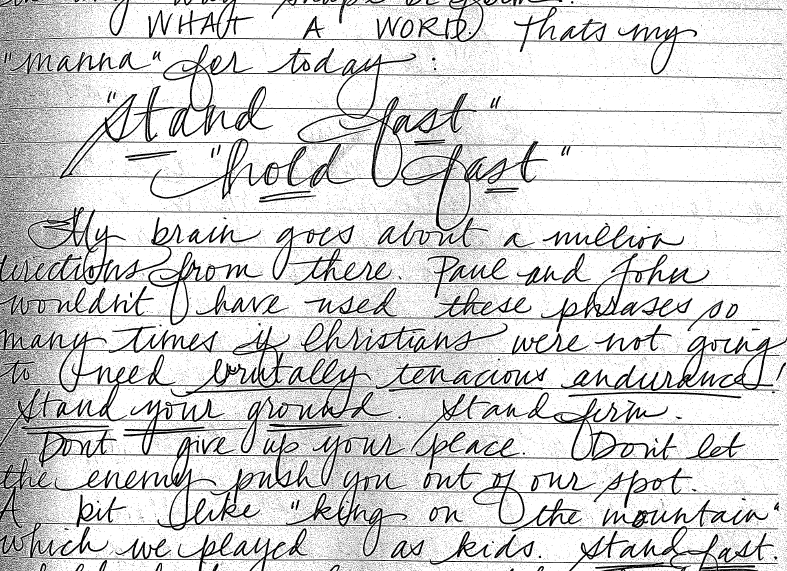 WHAT A WORD! Thats my
"manna" for today :
"Stand fast"
"hold fast"
My brain goes about a million
directions from there. Paul and John
wouldn't have used these phrases so
many times if Christians were not going
to need brutally tenacious endurance!
Stand your ground. Stand firm.
Dont give up your place. Don't let
the enemy push you out of our spot.
A bit like "king on the mountain"
which we played as kids. Stand fast.